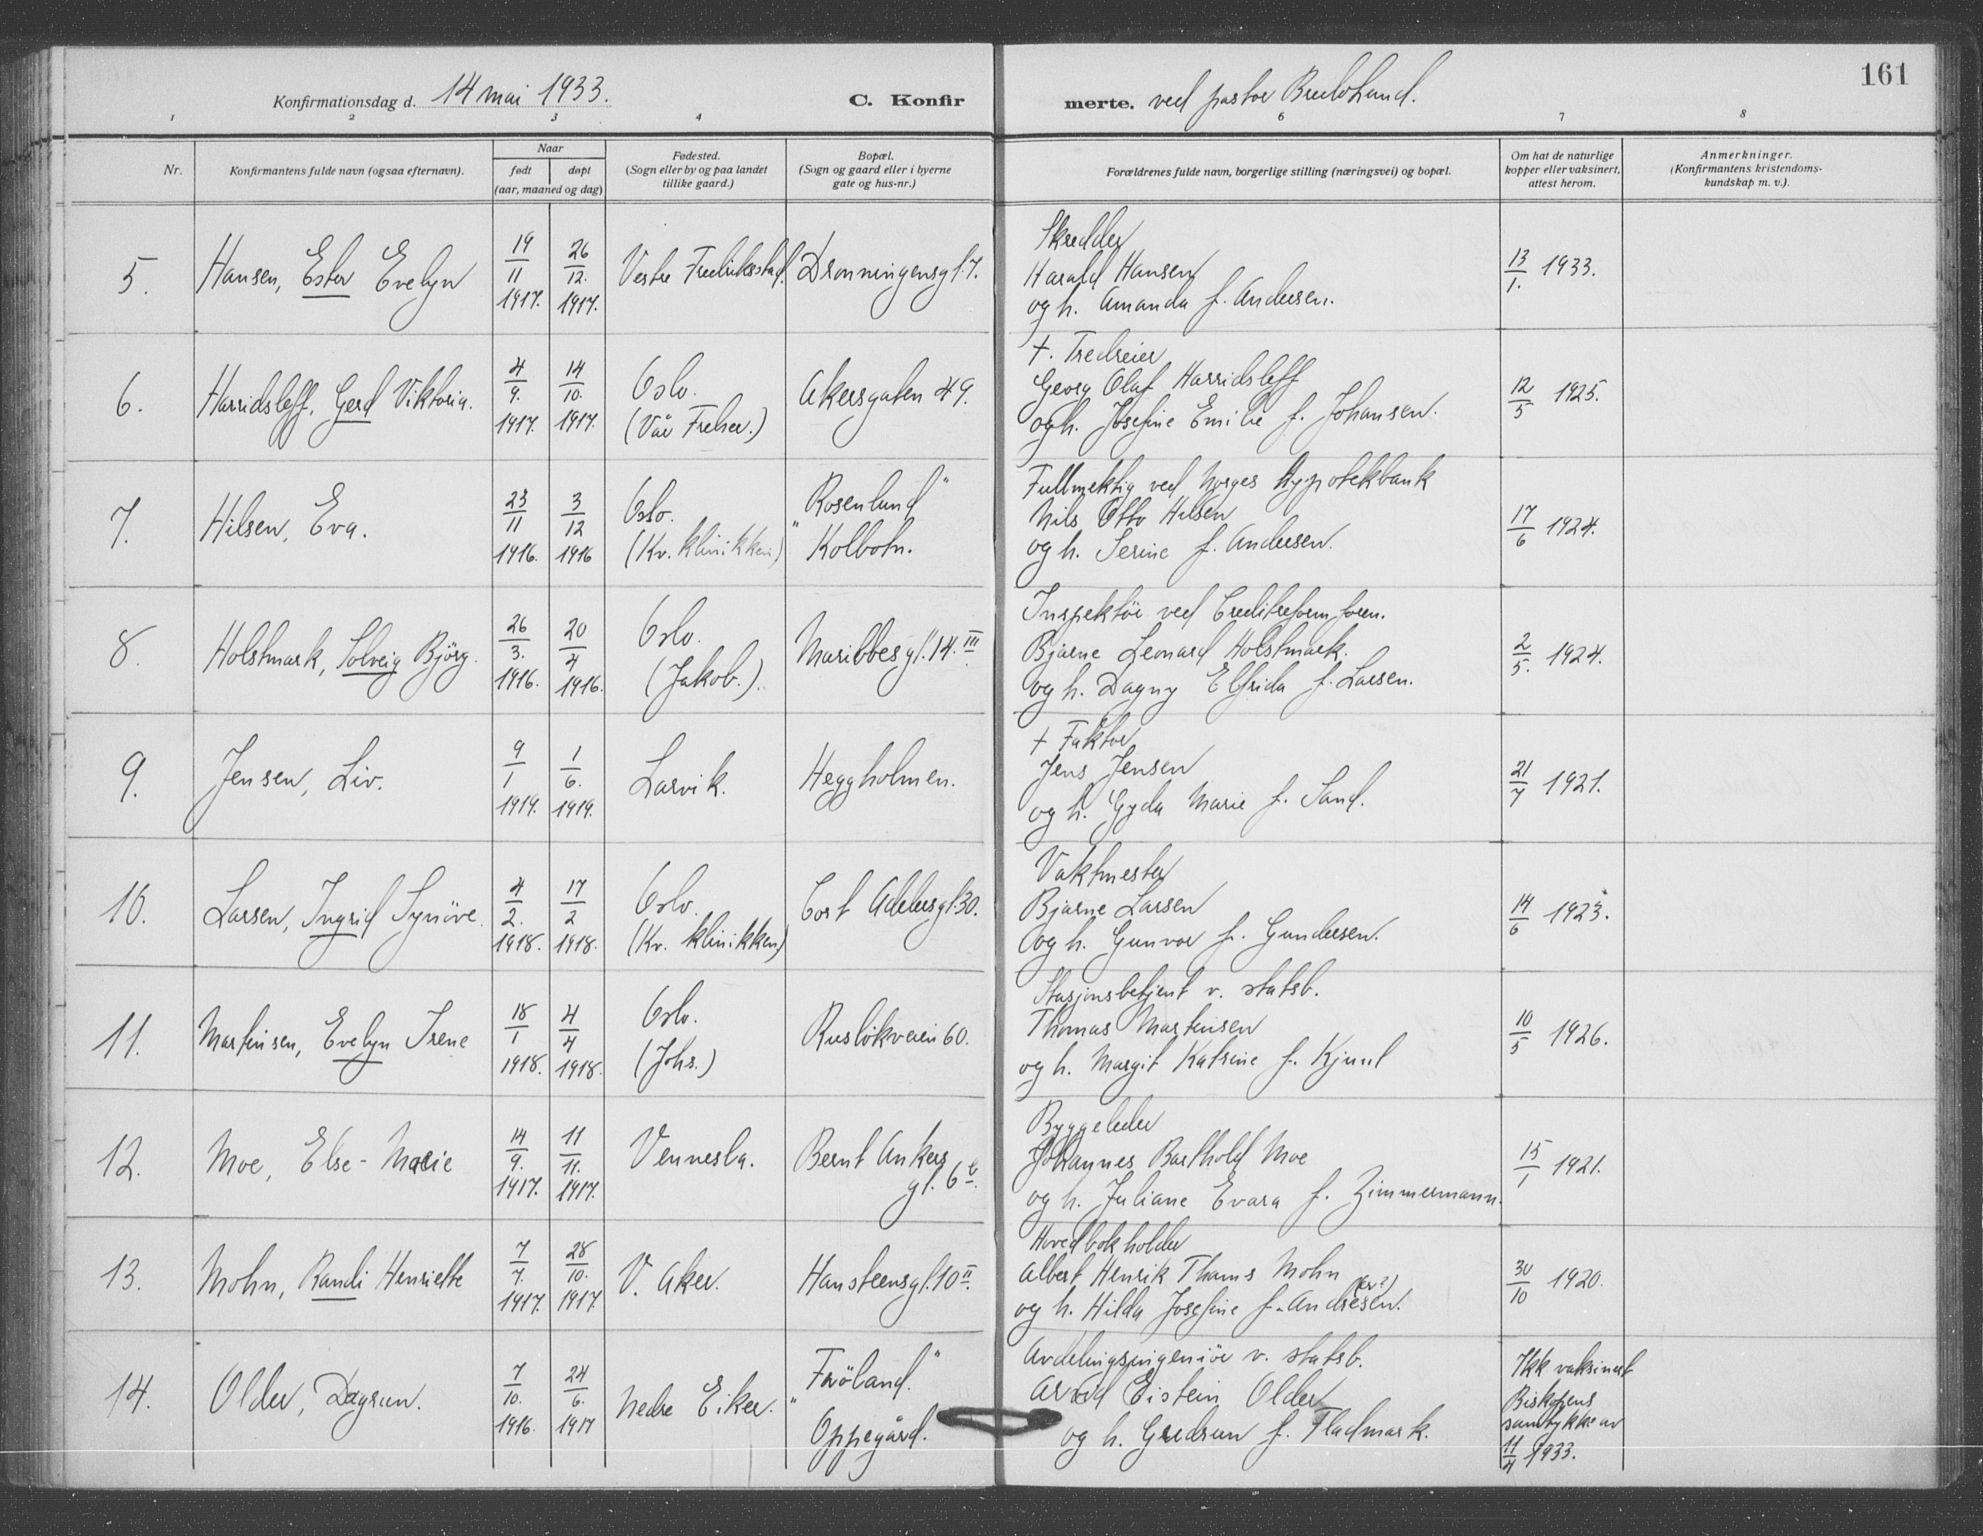 161
Konfirmationsdag d. 14 mai 1933.
C. Konfirmerte. ved pastor
1 2 3 4 6 7 8
Nr.
Konfirmantens fulde navn (ogsaa efternavn).
Naar
født døpt
(aar, maaned og dag)
Fødested.
(Sogn eller by og paa landet
tillike gaard.)
Bopæl.
(Sogn og gaard eller i byerne
gate og hus-nr.)
Forældrenes fulde navn, borgerlige stilling (næringsvei) og bopæl.
Om hat de naturlige
kopper eller vaksinert,
attest herom.
Anmerkninger.
(Konfirmantens kristendoms-
kundskap m. v.).
5. Hansen, Ester Evelyn
19/11 1917. 26/12. 1917.
Vestre Fredriksstad.
Dronningensgt. 7.
Skredder
Harald Hansen
og h. Amanda f. Andersen.
13/1. 1933.
6. Harridsleff, Gerd Viktoria.
4/9. 1917. 14/10. 1917.
Oslo.
(Vår Frelser.)
Akersgaten 49.
†. Tredreier
Georg Olaf Harridsleff
og h. Josefine Emilie f. Johansen.
12/5 1925.
7. Hilsen, Eva.
23/11 1916. 3/12 1916
Oslo.
(Kv. klinikken)
"Rosenlund"
Kolbotn.
Fullmektig ved Norges Hypotekbank
Nils Otto Hilsen
og h. Serine f. Andersen.
17/6 1924.
8. Holstmark, Solveig Bjørg.
26/3. 1916. 20/4 1916.
Oslo.
(Jakob.).
Maribbesgt. 14. III
Inspektör ved Creditreform foren.
Bjarne Leonard Holstmark.
og h. Dagny Elfrida f. Larsen.
2/5. 1924.
9. Jensen, Liv.
9/1 1919. 1/6. 1919.
Larvik.
Heggholmen.
† Faktor
Jens Jensen
og h. Gyda Marie f. Sand.
21/7 1921.
10. Larsen, Ingrid Synöve.
4/2. 1918. 17/2 1918.
Oslo.
(Kv. klinikken)
Cort Adelersgt. 30.
Vaktmester
Bjarne Larsen
og h. Gunvor f. Gundersen.
14/6 1923.
11. Martinsen, Evelyn Irene
18/1 1918. 4/4 1918.
Oslo.
(Johs.)
Ruslökveien 60.
Stasjonsbetjent v. statsb.
Thomas Martinsen
og h. Margit Katrine f. Kjuul
10/5 1926.
12. Moe, Else-Marie
14/9. 1917. 11/11. 1917.
Vennesla.
Bernt Ankers
gt. 6 b.
Byggeleder
Johannes Barthold Moe
og h. Juliane Evara f. Zimmermann.
15/1 1921.
13. Mohn, Randi Henriette
7/7. 1917. 28/10. 1917.
V. Aker.
Hansteensgt. 10 II.
Hovedbokholder
Albert Henrik Thams Mohn
og h. Hilda Josefine f. Andresen. (er?)
30/10 1920.
14. Older, Dagrun.
7/10. 1916. 24/6. 1917
Nedre Eiker.
"Fröland."
Oppegård.
Avdelingsingeniör v. statsb.
Arvid Eistein Older
og h. Gudrun f. Fladmark.
Ikk vaksinert
Biskopens
samtykke av
11/4 1933.